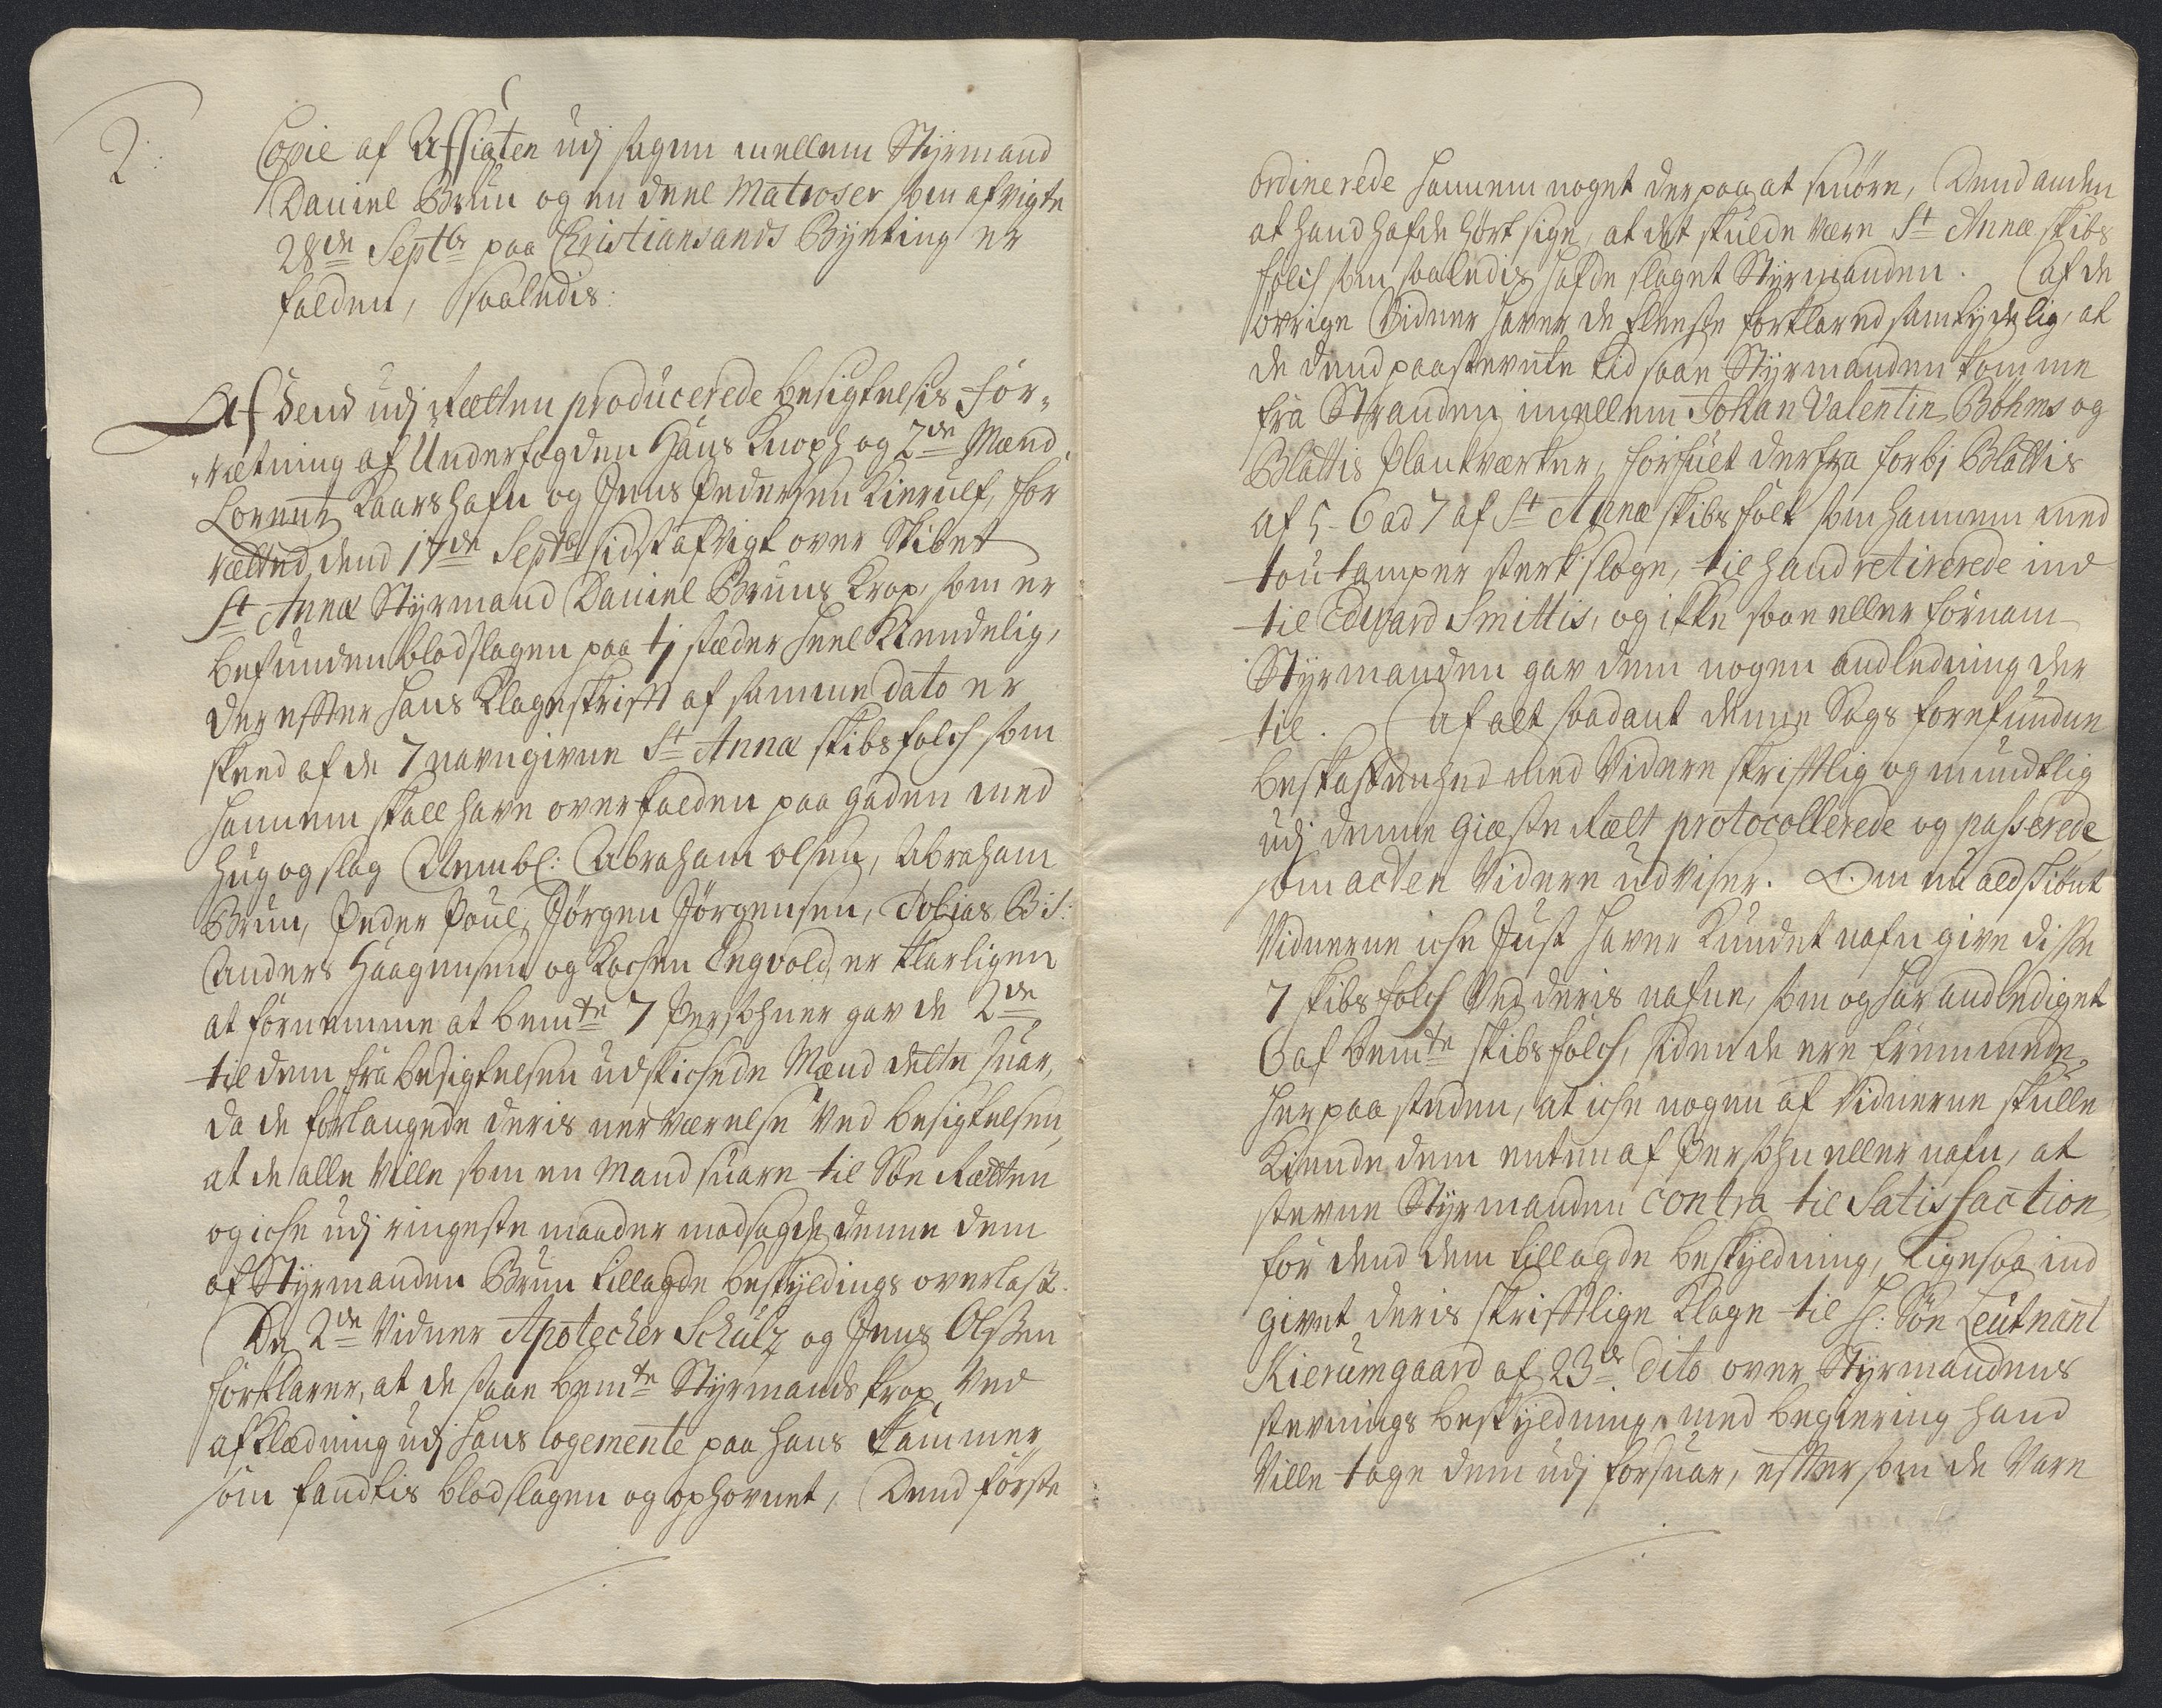 2.
Copie af Afsigten udj sagen mellem Styrmand
Daniel Brun og en deel Matroser som afvigte
28de Septbr paa Christiansands Byeting er
falden, saaledis:
Af dend udj Rætten producerede besigtelsis for-
rætning af Underfogden Hans Knoph og 2de Mænd
Lorentz Kaarshafn og Jens Pedersen Kierulf, for
rætted dend 17de Septbr sidst afvigt over Skibet
St Annæ Styrmand Daniel Bruns Krop, som er
befunden blodslagen paa tj stæder heel kiendelig,
der efter hans Klageskrift af samme dato er
skeed af de 7 navngivne St Annæ skibsfolch som
hannem skall have overfalden paa gaden med
hug og slag Nembl: Abraham olsen, Abraham
Brun, Peder Poul, Jørgen Jørgensen, Tobias Bis:
Anders Haagensen og Kochen Engvold, er klarligen
at fornemme at bemte 7 Persohner gav de 2de
til dem fra besigtelsen udskichede Mænd dette suar,
da de forlangede deris nerværelse ved besigtelsen,
at de alle ville som en Mand suare til Søe Rætten
og iche udj ringeste maader modsagde denne dem
af Styrmanden Brun tillagde beskyldings overlast.
De 2de Vidner Apotecher Schultz og Jens Olsen
forklarer, at de saae bemte Styrmands krop, ved
afklædning udj hans logemente paa hans Kammer,
som fandtis blodslagen og ophovnet, Dend første
ordinerede hannem noget der paa at smøre, Dend anden
at hand hafde hørt sige, at det skulde være St Annæ skibs
folch som saaledis hafde slaget Styrmanden. Af de
øvrige Vidner haver de fleeste forklared samtydelig, at
de dend paastevnte tid saae Styrmanden komme
fra Stranden imellem Johan Valentin Bøhms og
Blattis Plankværker, forfult derfra forbj Blattis
af 5. 6 ad 7 af St Annæ skibsfolk som hannem med
toutamper sterk sloge, til hand retirerede ind
til Edvard Smittis, og ikke saae eller fornam
Styrmanden gav dem nogen andledning der
til. Af alt saadant denne Sags forefundne
beskaffenhed med Videre skriftlig og mundtlig
udj denne Giæste Rætt protocollerede og passerede
som acten Videre udviser. Om nu aldskiønt
Vidnerne iche Just haver kundet nafngive disse
7 skibsfolch ved deris nafne, som og har andlediget
6 af bemte skibsfolch, siden de ere fremmede
her paa steden, at iche nogen af Vidnerne skulle
kiende dem enten af Persohn eller nafn, at
stevne Styrmanden contra til Satisfaction
for dend dem tillagde beskyldning, ligesaa ind
givet deris skriftlige Klage til H: Søe Leutnant
Kierumgaard af 23de dito over Styrmandens
stevnings beskyldning, med begiering hand
ville tage dem udj forsuar, eftersom de vare